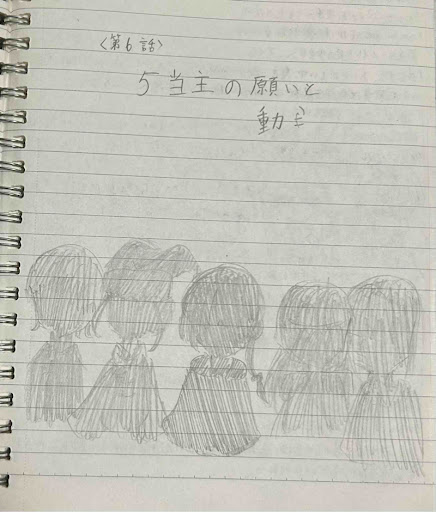 〈第6話〉
5当主の願いと
動き